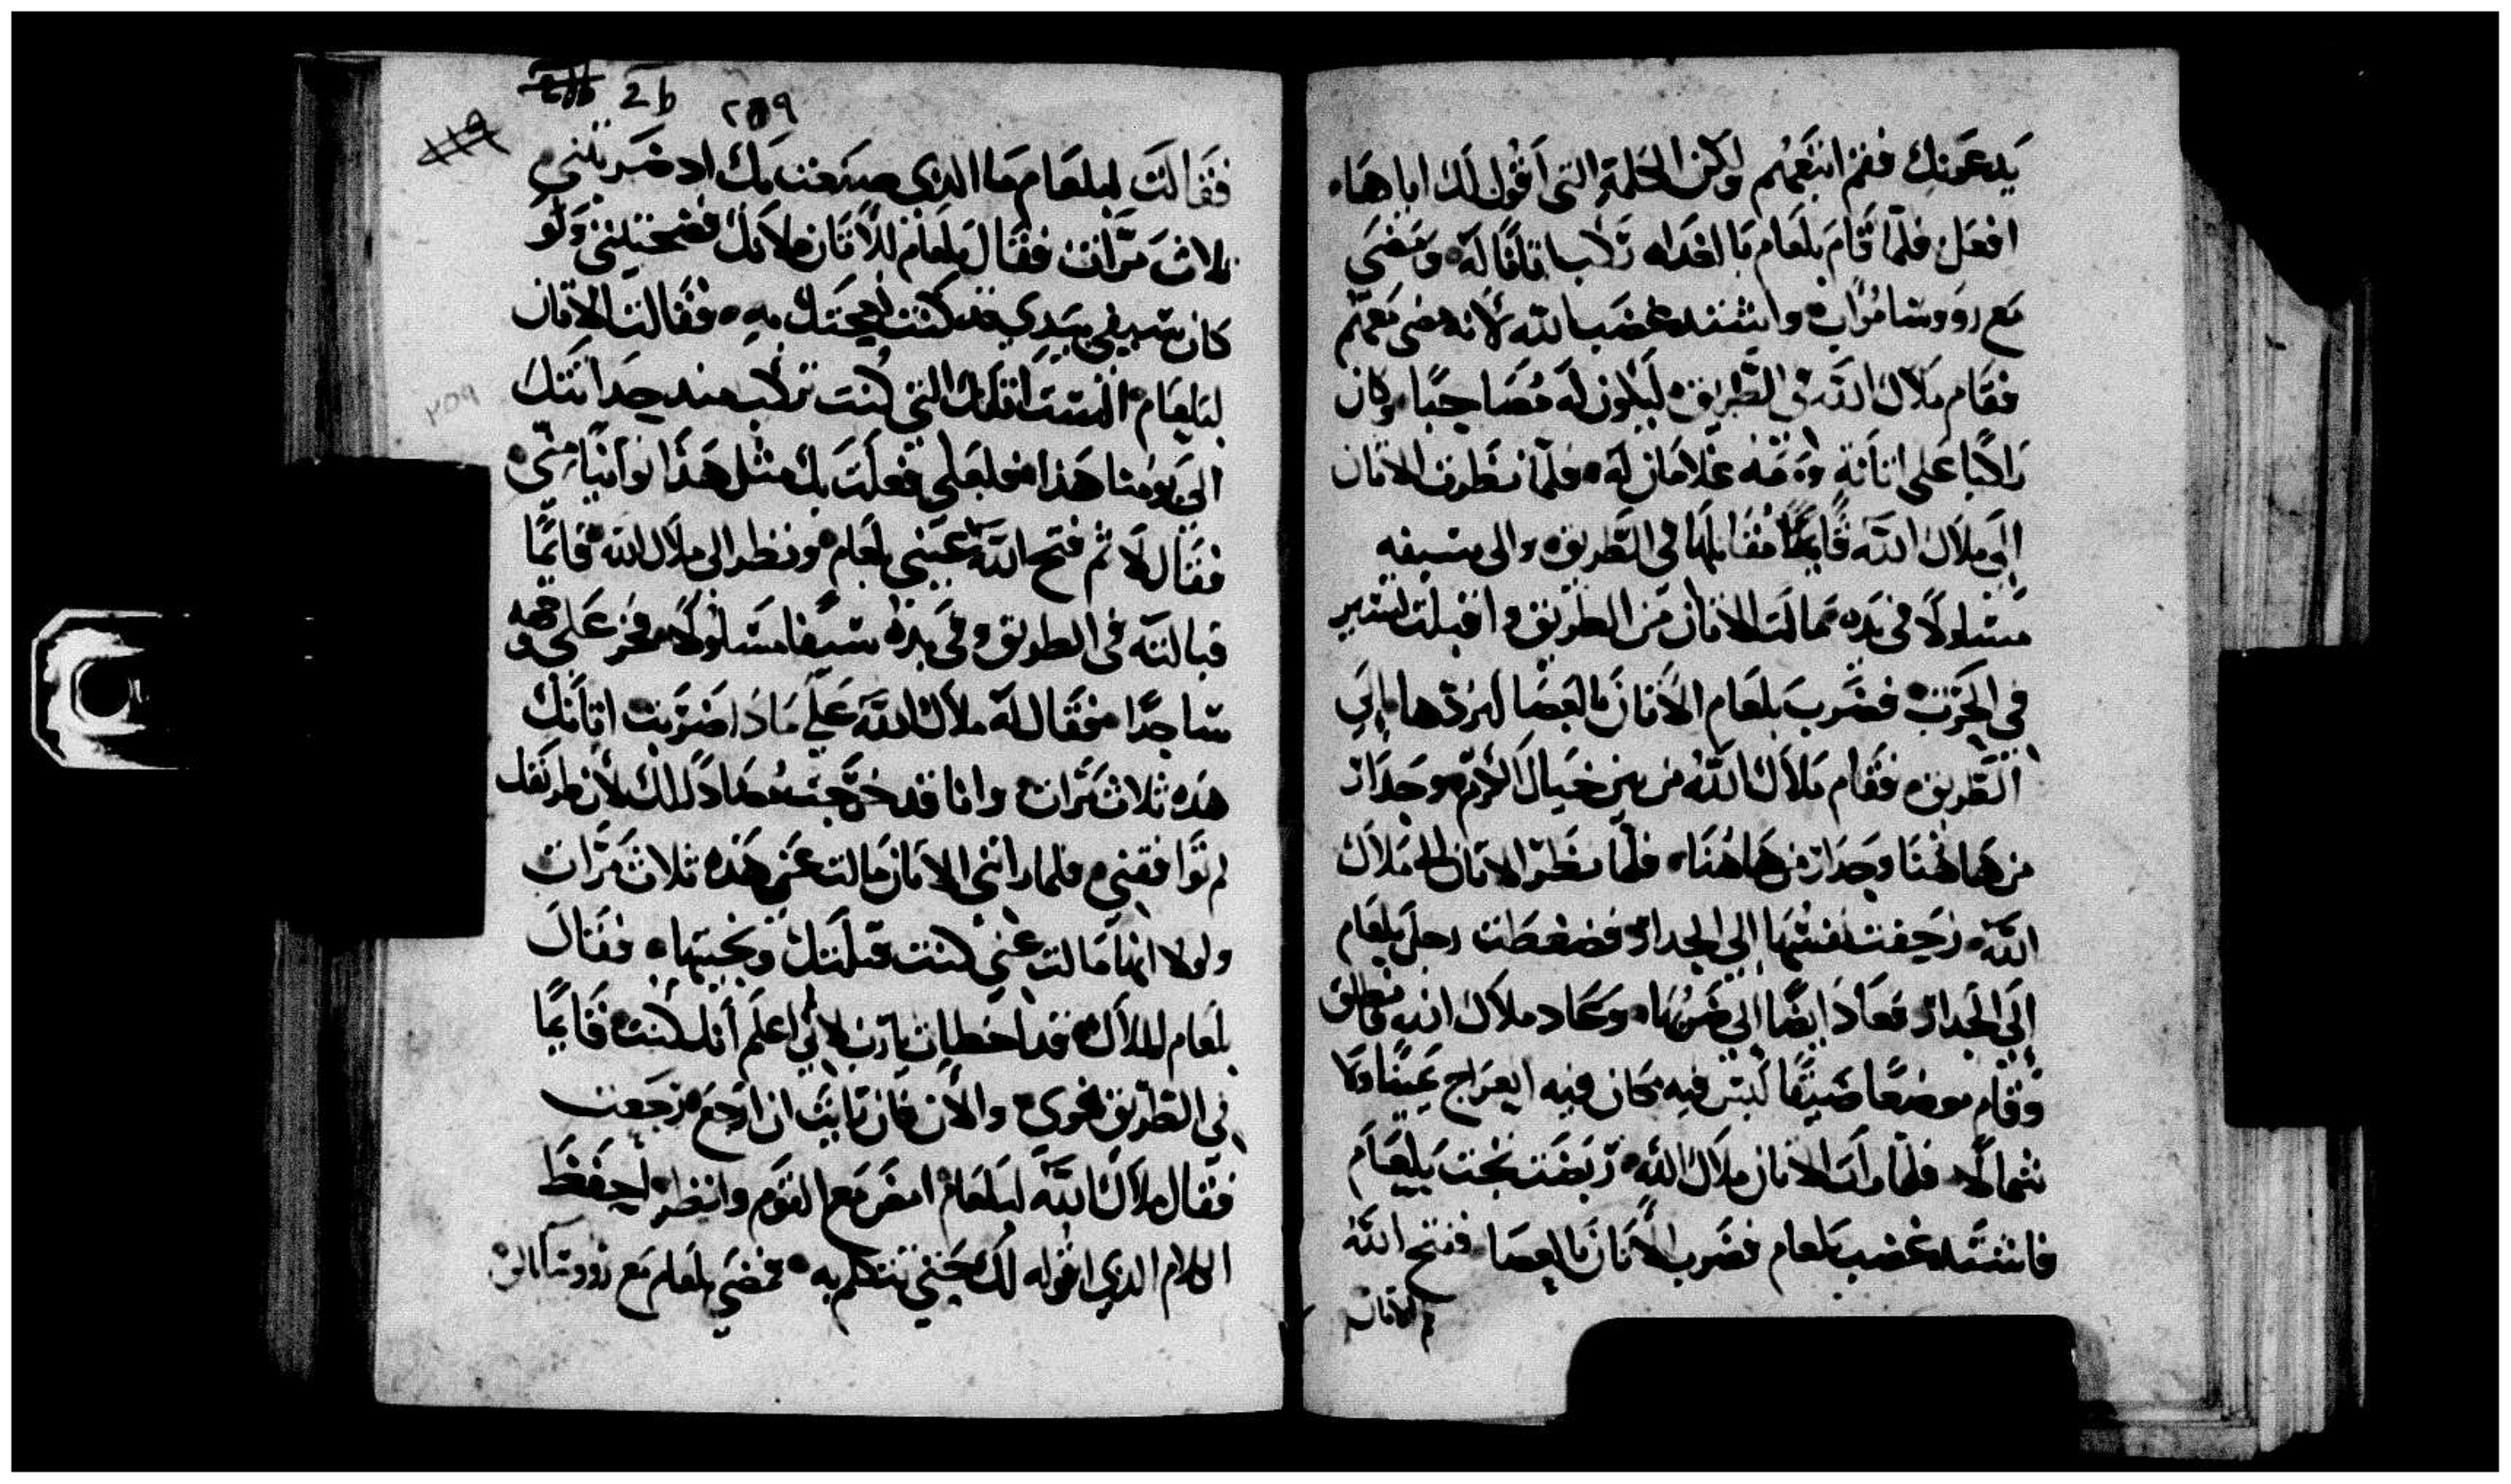 يَدعَونك فقم اتبَعهُم ولكن الكلمة التي اَقُول لَك اياهَا
افعَل فلمّا قَامَ بلعَام بالغدَاه رَكب اتانا لَه وَمَضَي
مَع رووسَا مُوَاب واشتد غضَب الله لانه مضي مَعَهم
فقَام مَلاك الله في الطريق ليَكون لَه مُضَا جبًا وكان
رَاكبًا عَلي اتانَة وَمَعَه غلامَان لَه فلمّا نظرت الاتان
إلي مَلاك الله قَايمًا مُقَابلهَا في الطَريق والي سيفه
مَسلولاً في يَده مَالت الاتان مَن الطريق واقبلت تسير
في الحَرث فضَرب بلعَام الأتانَ بالعَصَا ليَردّها إلي
الطَريق فقَام مَلاك الله من بين خيَال الكرم وجدَار
من هَاهُنَا وجدَار من هَاهُنَا فلمّا نظرَ الاتان الي مَلاك
الله زحَفت نفسهَا إلي الجدار فضغطت رجل بلعَام
إلي الجَدار فعَاد ايضًا إلي ضَربهَا وعَاد مَلاك الله فانطلق
وقَام موضعًا ضَيقًا ليسَ فيه مَكان فيه ايعرَاج يمينًا ولا
شمالًا فلمّا رات الاتان ملاك الله ربَضَت تحت بلعَام
فاشتد غضب بلعام فضَرب الأتانَ بالعصَا ففتح الله
فم الاتان
2b ٢٥٩
١١٩
فقَالَت لبلعَام مَا الذي صنعت بكَ اد ضَربتني
ثلاث مرّات فقَال بلعَام للأتان لانك فضحتيني ولَو
كان سيفي بيَدِي قد كنت اهجتك به فقالت الاتان
لبلعَام الستُ اتانك التي كنت تركب منذ حدَاثتك
الي يومُنا هَذا فلعَلي فعلَت بكَ مثل هَذا توانيًا منّي
فقَال لا ثم فتح الله عَيني بلعَام ونظر الي ملاك الله قَايمًا
قبالته في الطريق وفي يده سيفا مسَلولاً فخر عَلي وجهه
سَاجدًا فقَال لَه ملاك الله عَلي مَادَا ضَرَبت اتانك
هَده ثلاث مَرات وانا قد خرَجت مُضادًا لك لأن طريقك
لم تَوَافقني فلما راتني الاتان مَالت عَني هَذه ثلاث مَرّات
ولولا انها مَالت عني كنت قتلتك ونجيتها فقَال
بلعَام للملاك قد اخطيت يارب لاني لم اعلم أنك كنت قَايمًا
في الطريق نحوي والان فان رايت ان ارجع رجَعت
فقال ملاك الله لبلعَام امض مَع القوم وانظر احفَظ
الكلام الذي اقوله لك حَتي تتكلم به فمضَي بلعَام مع رووسَا بالاق
٢٥٩